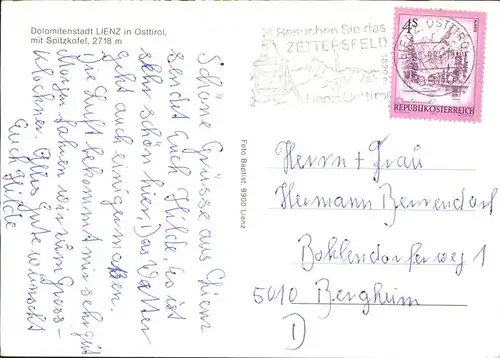 Dolomitenstadt LIENZ in Osttirol,
mit Spitzkofel, 2718 m
Schöne Grüsse aus Lienz
sendet Euch Hilde. Es ist
sehr schön hier. Das Wetter
geht auch einigermaßen.
Die Luft bekommt mir sehr gut
Morgen fahren wir zum Gross-
Klockner. Alles Gute wünscht
Euch Hilde
Foto Baptist, 9900 Lienz
Besuchen Sie das
ZETTERSFELD
Lienz-Osttirol
LIENZ, OSTTIROL
4S
REPUBLIK ÖSTERREICH
Herrn + Frau
Hermann Berrendorf
Bohlendorferweg 1
5010 Bergheim
D